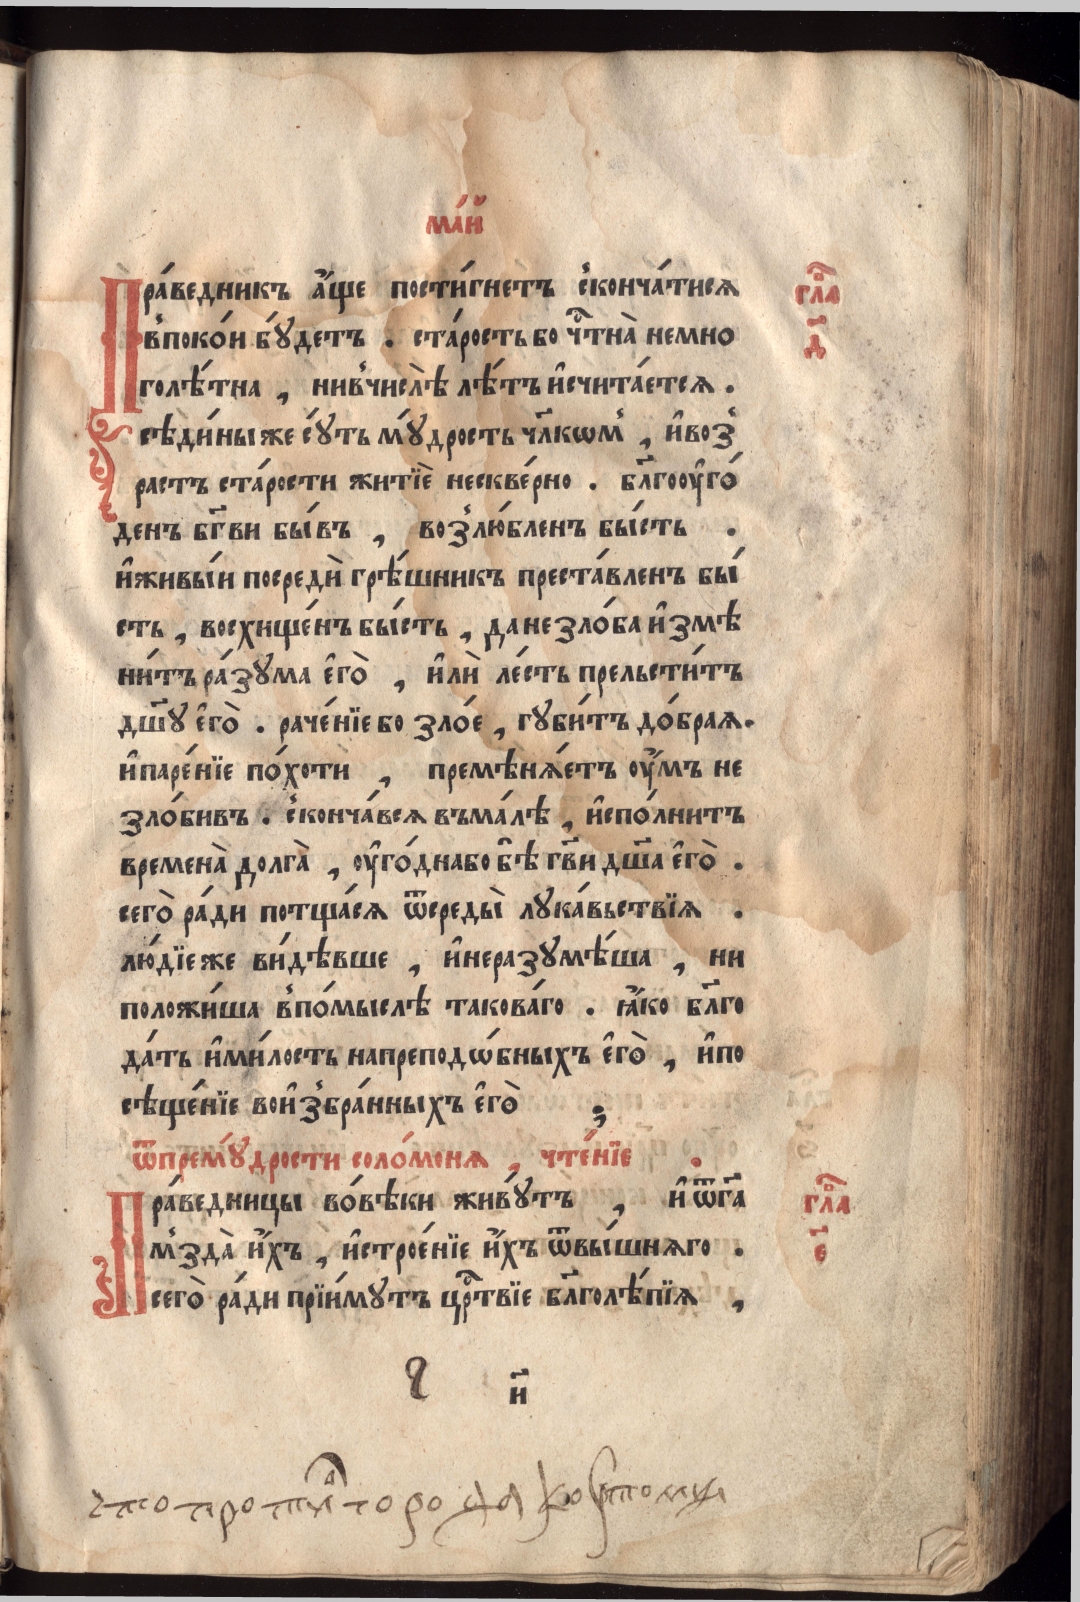 ма́й
Пра́ведникъ а҆́ще пости́гнетъ с̾конча́тисѧ
в̾поко́и бꙋ́детъ . ста́рость бо чⷭ҇тна̀ немно
голѣ́тна , нив̾числѣ̀ лѣ́тъ и҆счита́етсѧ .
сѣди́ны же сꙋ́ть мꙋ́дрость чл҃кѡм̾ , и҆воз̾
растъ ста́рости житїѐ нескве́рно . бл҃гоѹ҆го́
денъ бг҃ви бы́въ , воз̾лю́бленъ бы́сть .
и҆живы́и посредѝ грѣ́шникъ преста́вленъ бы́
сть , восхище́нъ бы́сть , да не зло́ба и҆змѣ
ни́тъ ра́зꙋма є҆го̀ , и҆лѝ ле́сть прельсти́тъ
дш҃ꙋ є҆го̀ . раче́нїе бо зло́е , гꙋби́тъ до́браѧ .
и҆паре́нїе по́хоти , премѣнѧ́етъ ѹ҆́мъ не
зло́бивъ . с̾конча́всѧ въма́лѣ , и҆спо́лнитъ
времена̀ долга̀ , ѹ҆го́дна бо бѣ̀ гв҃и дш҃а є҆го̀ .
сего̀ ра́ди потща́сѧ ѿсреды̀ лꙋка́вьствїѧ .
лю́дїе же ви́дѣвше , и҆неразꙋмѣ́ша , ни
положи́ша в̾по́мыслѣ такова́го . ꙗ҆́ко бл҃го
да́ть и҆ми́лость напреподѡ́бныхъ є҆го̀ , и҆по
сѣще́нїе вои҆з̾бра́нныхъ є҆го̀ ;
ѿпремꙋ́дрости соло́монѧ , чте́нїе .
Пра́ведницы во́вѣки живꙋ́тъ , и҆ ѿгⷭ҇а
м̾зда̀ и҆́хъ , и҆строе́нїе и҆́хъ ѿвы́шнѧго .
сего̀ ра́ди прїи́мꙋтъ црⷭ҇твїе бл҃голѣ́пїѧ ,
глⷡ҇а
д҃
глⷡ҇а
є҃
и҃